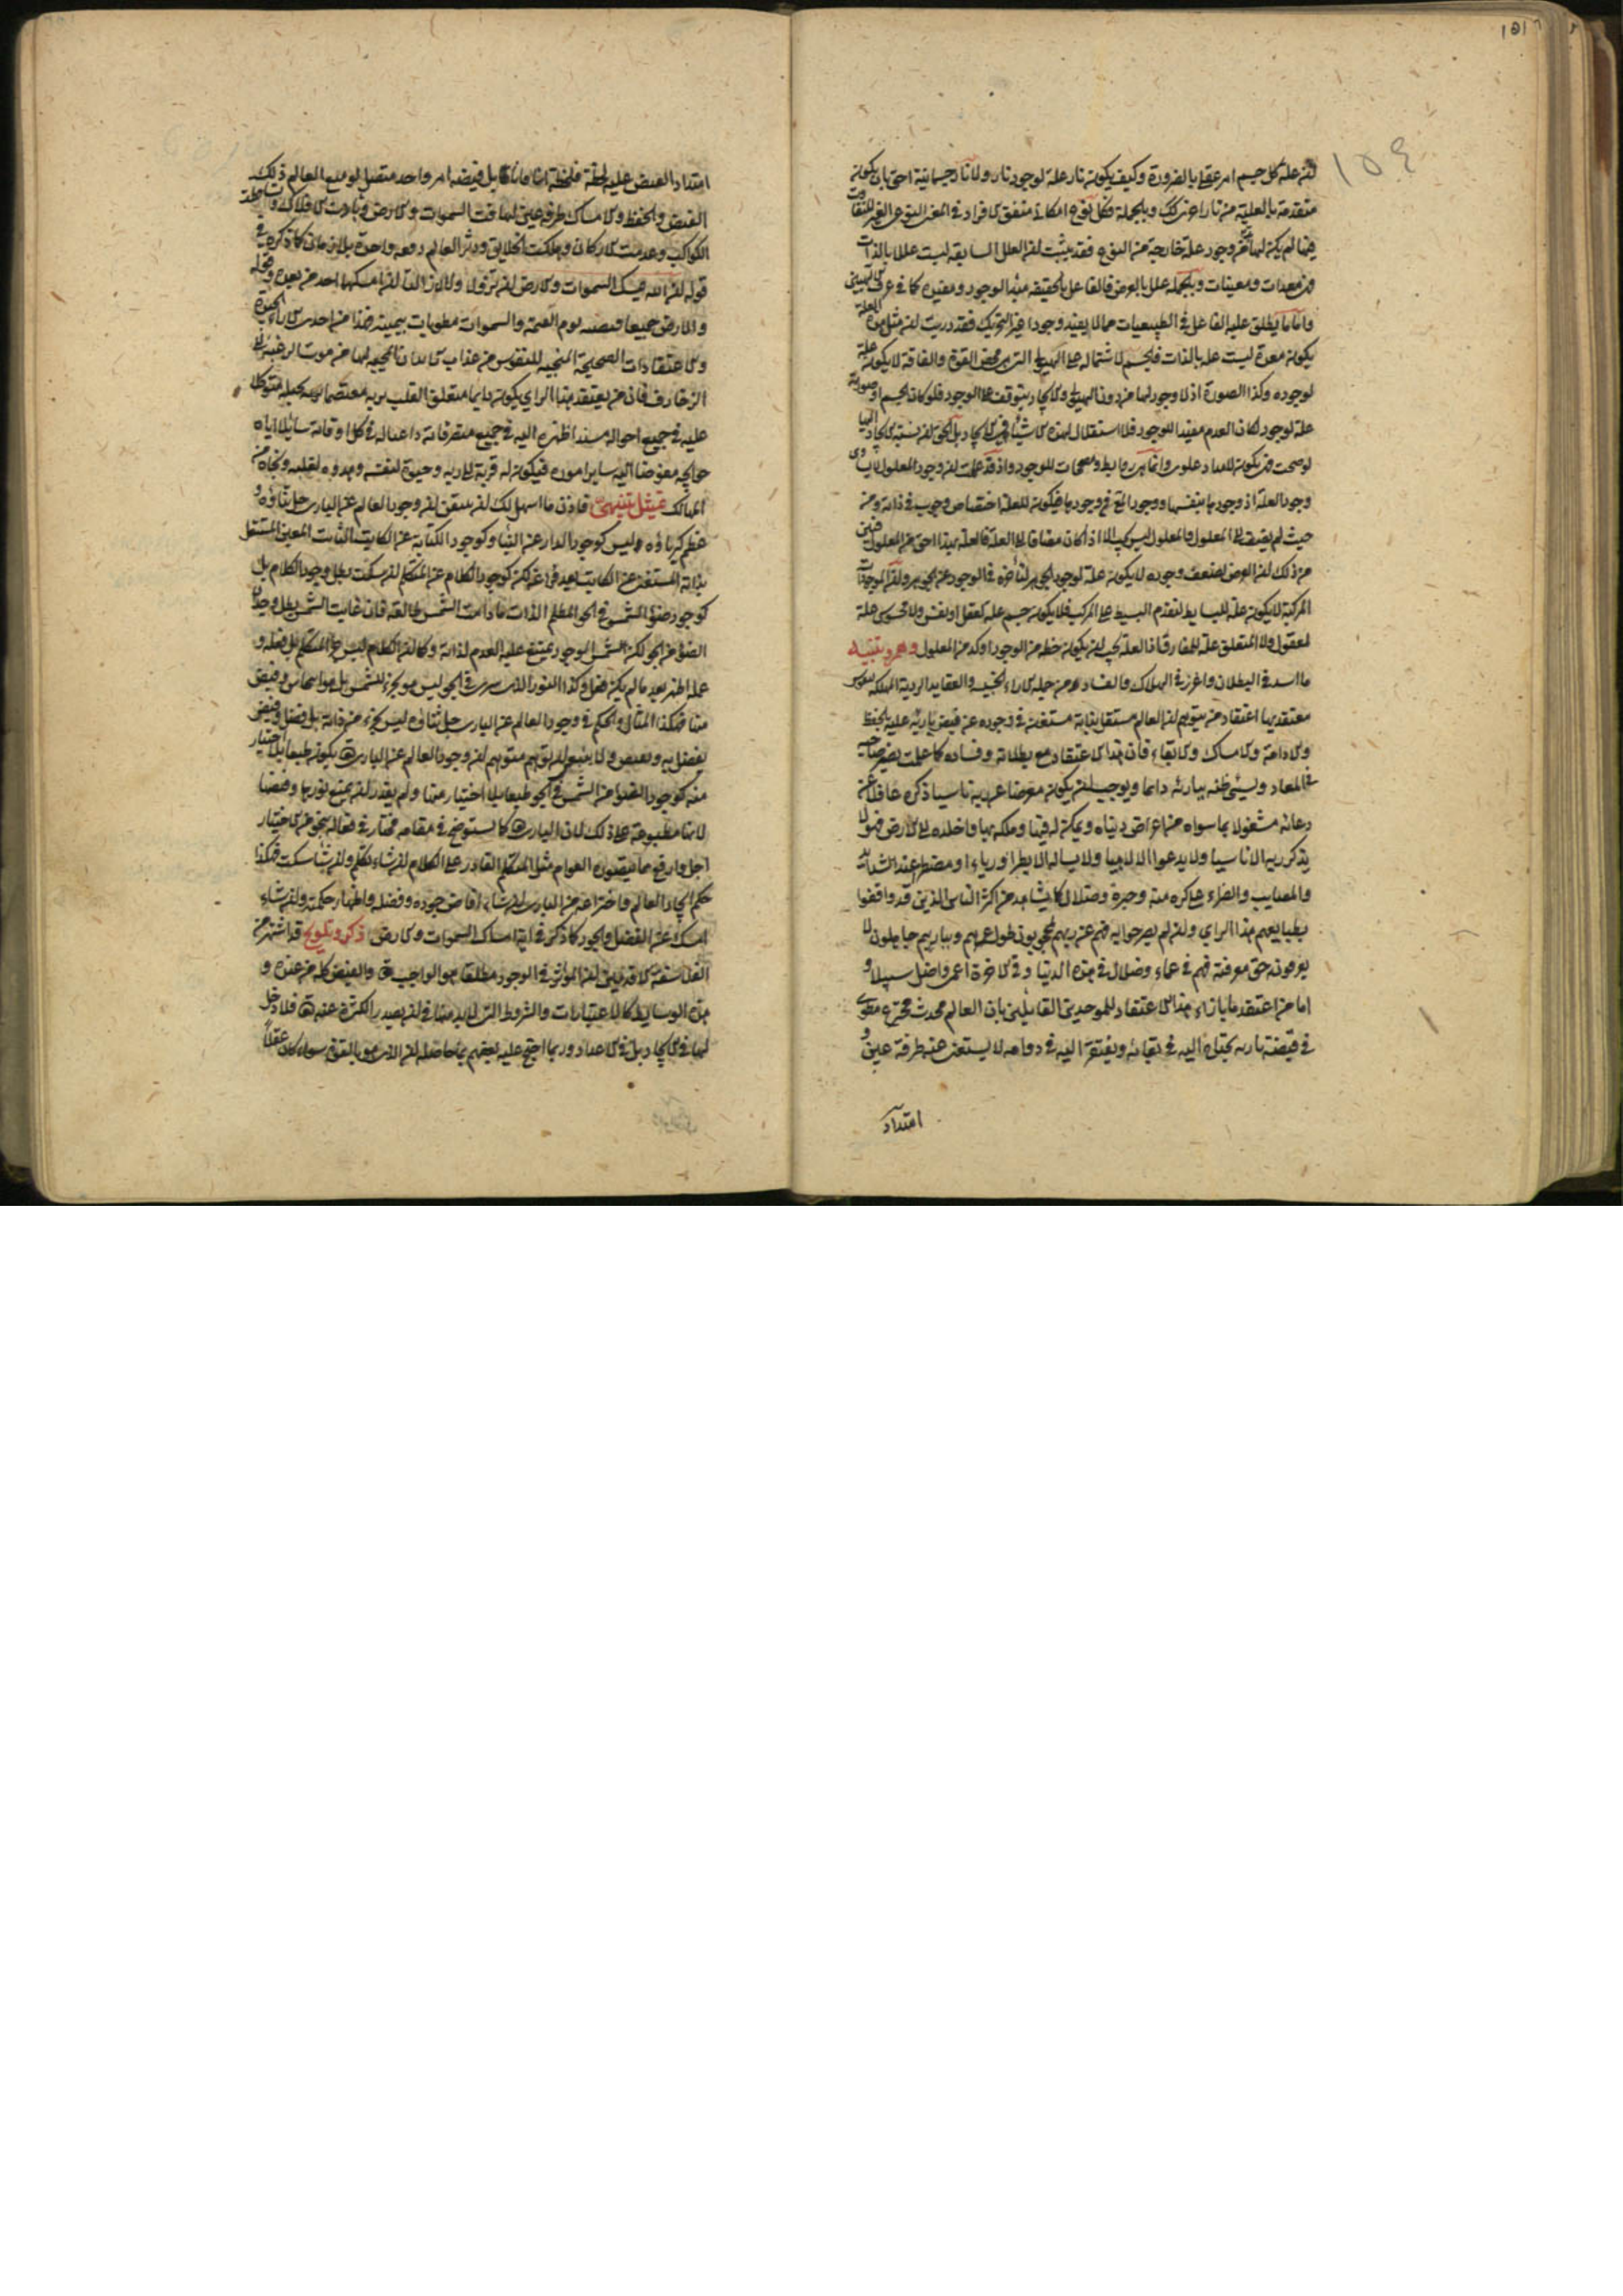 ١٥١
١٥٤
لان علة كل جسم امر عقلي بالضرورة وكيف يكون نار علة لوجود نار ولا نار جسمانية احق بان يكون
متقدمة بالعلية من نار اخرى كذلك وبالجملة فكل نوع امكاني متفق الافراد في المعنى النوعي الغير المتفاوت
فيها لم يكن لها من وجود علة خارجية من النوع فقد يثبت ان العلل السابقة ليست عللا بالذات
فهن معدات ومعينات وبالجملة علل بالعرض فالفاعل بالحقيقة مبدأ الوجود ومفيده كما في عرف الالهيين
واما ما يطلق عليه الفاعل في الطبيعيات مما لا يفيد وجودا غير التحريك فقد دريت ان مثل هذه العلة
يكون معدة ليست علة بالذات فالجسم لاشتماله على الهيولى التي هي محض القوة والفاقة لا يكون علة
لوجوده وكذا الصورة اذ لا وجود لها من دون الهيولى والايجاد يتوقف على الوجود فلو كان الجسم او صورته
علة لوجود لكان العدم مفيدا للوجود فلا استقلال لهذه الاشياء في الايجاد بل الحق ان نسبة الايجاد اليها
لو صحت فهن يكون الامداد علوى وانما هي روابط ومصححات للوجود واذ قد علمت ان وجود المعلول
وجود العلة اذ وجودها بنفسها ووجود المع في وجودها فيكون للعلة اختصاص وجوب في ذاته ومن
حيث لم يضف الى المعلول والمعلول ليس يجب الا اذا كان مضافا الى العلة فالعلة بهذا احق من المعلول فتبين
من ذلك ان العرض لضعف وجوده لا يكون علة لوجود الجوهر لتأخره في الوجود عن الجوهر وان الموجودات
المركبة لا يكون علة للبسايط لتقدم البسيط على المركب فلا يكون جسم علة لعقل او نفس ولا محسوس علة
لمعقول ولا المتعلق علة للمفارق فان العلة يجب ان يكون حظه من الوجود اوكد من المعلول وهم وتنبيه
ما اسد في البطلان واغرز في الهلاك والفساد من جملة الاراء الخبيثة والعقايد الردية المهلكة لنفوس
معتقديها اعتقاد من يتوهم ان العالم مستقل بذاته مستغن في وجوده عن فيض باريه عليه بالحفظ
والادامة والامساك والابقاء فان هذا الاعتقاد مع بطلانه وفساده كما علمت يضر صاحبه
في المعاد ويسئ ظنه ببارئه دائما ويوجب ان يكون معرضا عن ربه ناسيا ذكره غافلا عن
دعائه مشغولا بما سواه من اعراض دنياه ويمكن له فيها وملكه بها واخلده الى الارض فهو لا
يذكر ربه الا ناسيا ولا يدعوا الا لاهيا ولا يساله الا بطرا ورياء او مضطر عند الشدائد
والمصايب والضراء على كره منه وحيرة وضلال كما يشاهد من اكثر الناس الذين قد وافقوا
بطبايعهم هذا الراي وان لم يصرحوا به فهم عن ربهم محجوبون طول عمرهم وبباريهم جاهلون لا
يعرفونه حق معرفته فهم في عماء وضلال في هذه الدنيا وفي الاخرة اعمى واضل سبيلا و
اما من اعتقد ما بازاء هذا الاعتقاد للموحدين القايلين بان العالم محدث مخترع مطوى
في قبضة باريه يحتاج اليه في بقائه ويفتقر اليه في دوامه لا يستغنى عنه طرفة عين و
امتداد
امتداد الفيض عليه لحظة فلحظة آنا فآنا بل فيضه امر واحد متصل لو منع العالم ذلك
الفيض والحفظ والامساك طرفة عين لتهافتت السموات والارض وبادت الافلاك وتساقطت
الكواكب وعدمت الاركان وهلكت الخلايق ودثر العالم دفعة واحدة بلا زمان كما ذكره في
قوله ان الله يمسك السموات والارض ان تزولا ولئن زالتا ان امسكهما احد من بعده وقوله
والارض جميعا قبضته يوم القيمة والسموات مطويات بيمينه فهذا من احدى الاراء الجيدة
والاعتقادات الصحيحة المنجية للنفوس من عذاب الابدان المحيية لها من موت الرغبة الى
الزخارف فان من يعتقد هذا الراي يكون دايما متعلق القلب بربه معتصما بحبله متوكلا
عليه في جميع احواله مسندا ظهره اليه في جميع متصرفاته داعيا له في كل اوقاته سايلا اياه
حوايجه مفوضا اليه ساير اموره فيكون له قربة الى ربه وحيوة لنفسه وهدوء لقلبه ونجاة من
المهالك تمثيل تنبيهي فاذن ما اسهل لك ان تتيقن ان وجود العالم عن البارى جل ثناؤه و
عظم كبرياؤه وليس كوجود الدار عن البناء وكوجود الكتابة عن الكاتب الثابت العين المستقل
بذاته المستغنى عن الكاتب بعد فراغه لكن كوجود الكلام عن المتكلم ان سكت بطل وجود الكلام بل
كوجود ضوء الشمس في الجو المظلم الذات ما دامت الشمس طالعة فان غابت الشمس بطل وجدان
الضوء من الجو لكن شمس الوجود يمتنع عليه العدم لذاته وكما ان الكلام ليس جزء المتكلم بل فعله و
عمله اظهره بعد ما لم يكن فعل وكذا النور الذي يرى في الجو ليس هو بجزء للشمس بل هو انبجاس وفيض
منها فهكذا المثال والحكم في وجود العالم عن البارى جل ثنائه ليس بجزء من ذاته بل فضل وفيض
يفضل به ويفيض ولا ينبغي لك ان تتوهم متوهم ان وجود العالم عن البارى تع يكون طبعا بلا اختيار
منه كوجود الضوء من الشمس في الجو طبعا بلا اختيار منها ولم يقدر ان يمنع نورها وفيضها
لانها مطبوعة على ذلك لان البارى تع كما نستوضح في مقامه مختار في فعاله بنحو من الاختيار
اجل وارفع مما يتصوره العوام مثل المتكلم القادر على الكلام ان شاء تكلم وان شاء سكت فهكذا
حكم ايجاد العالم واختراعه من البارى ان شاء افاض جوده وفضله واظهار حكمته وان شاء
امسك عن الفضل والجود كما ذكر في اية امساك السموات والارض ذكر وتلويح قد اشتهر من
الفلاسفة الاقدمين ان المؤثر في الوجود مطلقا هو الواجب تع والفيض كله من عنده و
هذه الوسايط كالاعتبارات والشروط التي لا بد منها في ان يصدر الكثرة عنه تع فلا دخل
لها في الايجاد بل في الاعداد وربما احتج عليه بعضهم بما حاصله ان الامر بالقوة سواء كان عقلا